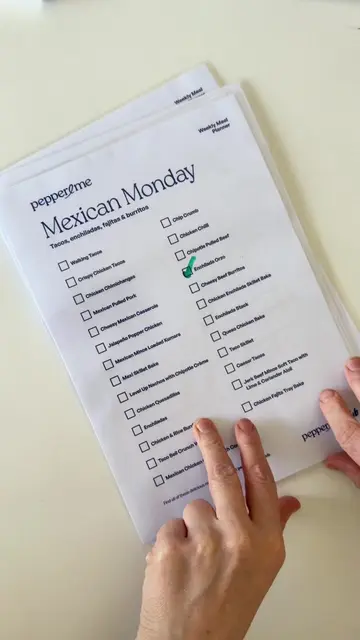 Weekly Meal
Weekly Meal
Planner
pepper&me
Mexican Monday
Tacos, enchiladas, fajitas & burritos
Walking Tacos
Crispy Chicken Tacos
Chicken Chimichangas
Mexican Pulled Pork
Cheesy Mexican Casserole
Jalapeño Popper Chicken
Mexican Mince Loaded Kumara
Maxi Skillet Bake
Level Up Nachos with Chipotle Crème
Chicken Quesadillas
Enchiladas
Chicken & Rice
Taco Bell Crunch
Mexican Chicken
Chip Crumb
Chicken Chilli
Chipotle Pulled Beef
Enchilada Orzo
Cheesy Beef Burritos
Chicken Enchilada Skillet Bake
Enchilada Stack
Queso Chicken Bake
Taco Skillet
Caesar Tacos
Jerk Beef Mince Soft Taco with
Lime & Coriander Aioli
Chicken Fajita Tray Bake
pepper
Find all of these delicious